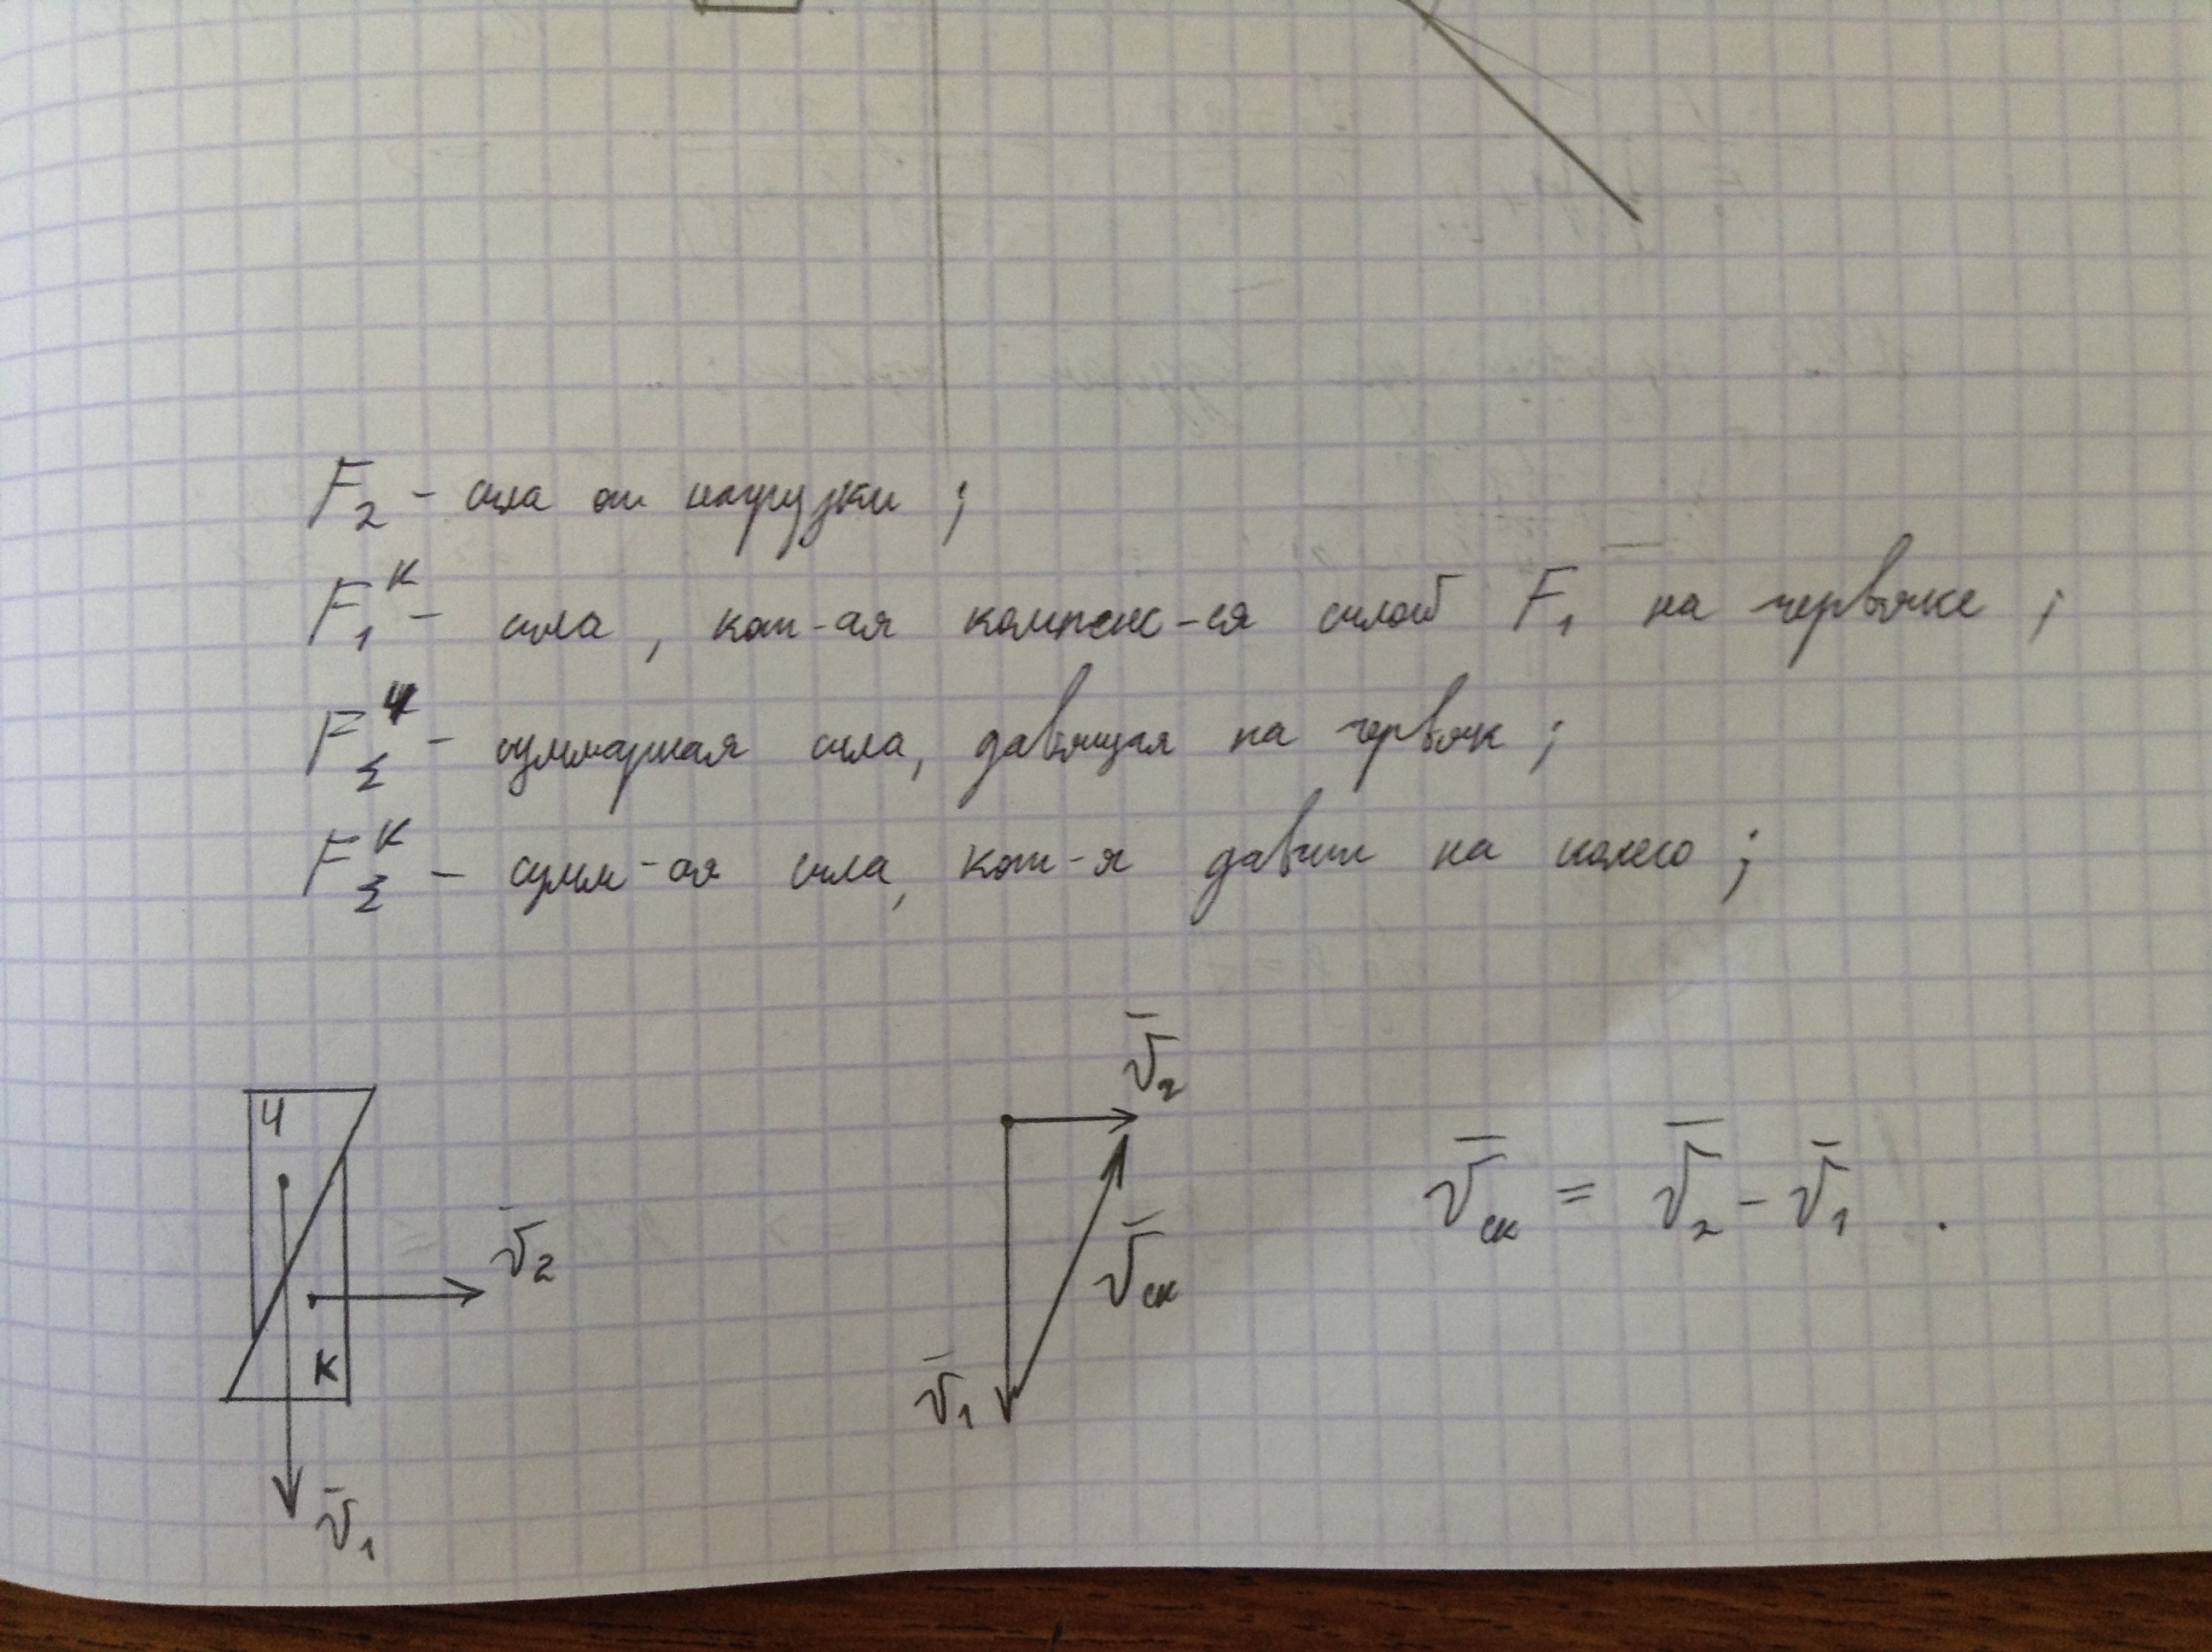 F₂ – сила от нагрузки ;
F₁ᴷ – сила , кот-ая компенс-ся силой F₁ на червяке ;
F_Σ^Ч – суммарная сила, давящая на червяк ;
F_Σ^К – сумм-ая сила, кот-я давит на колесо ;
Ч
К
v̄₂
v̄₁
v̄₂
v̄ск
v̄₁
v̄ск = v̄₂ – v̄₁ .